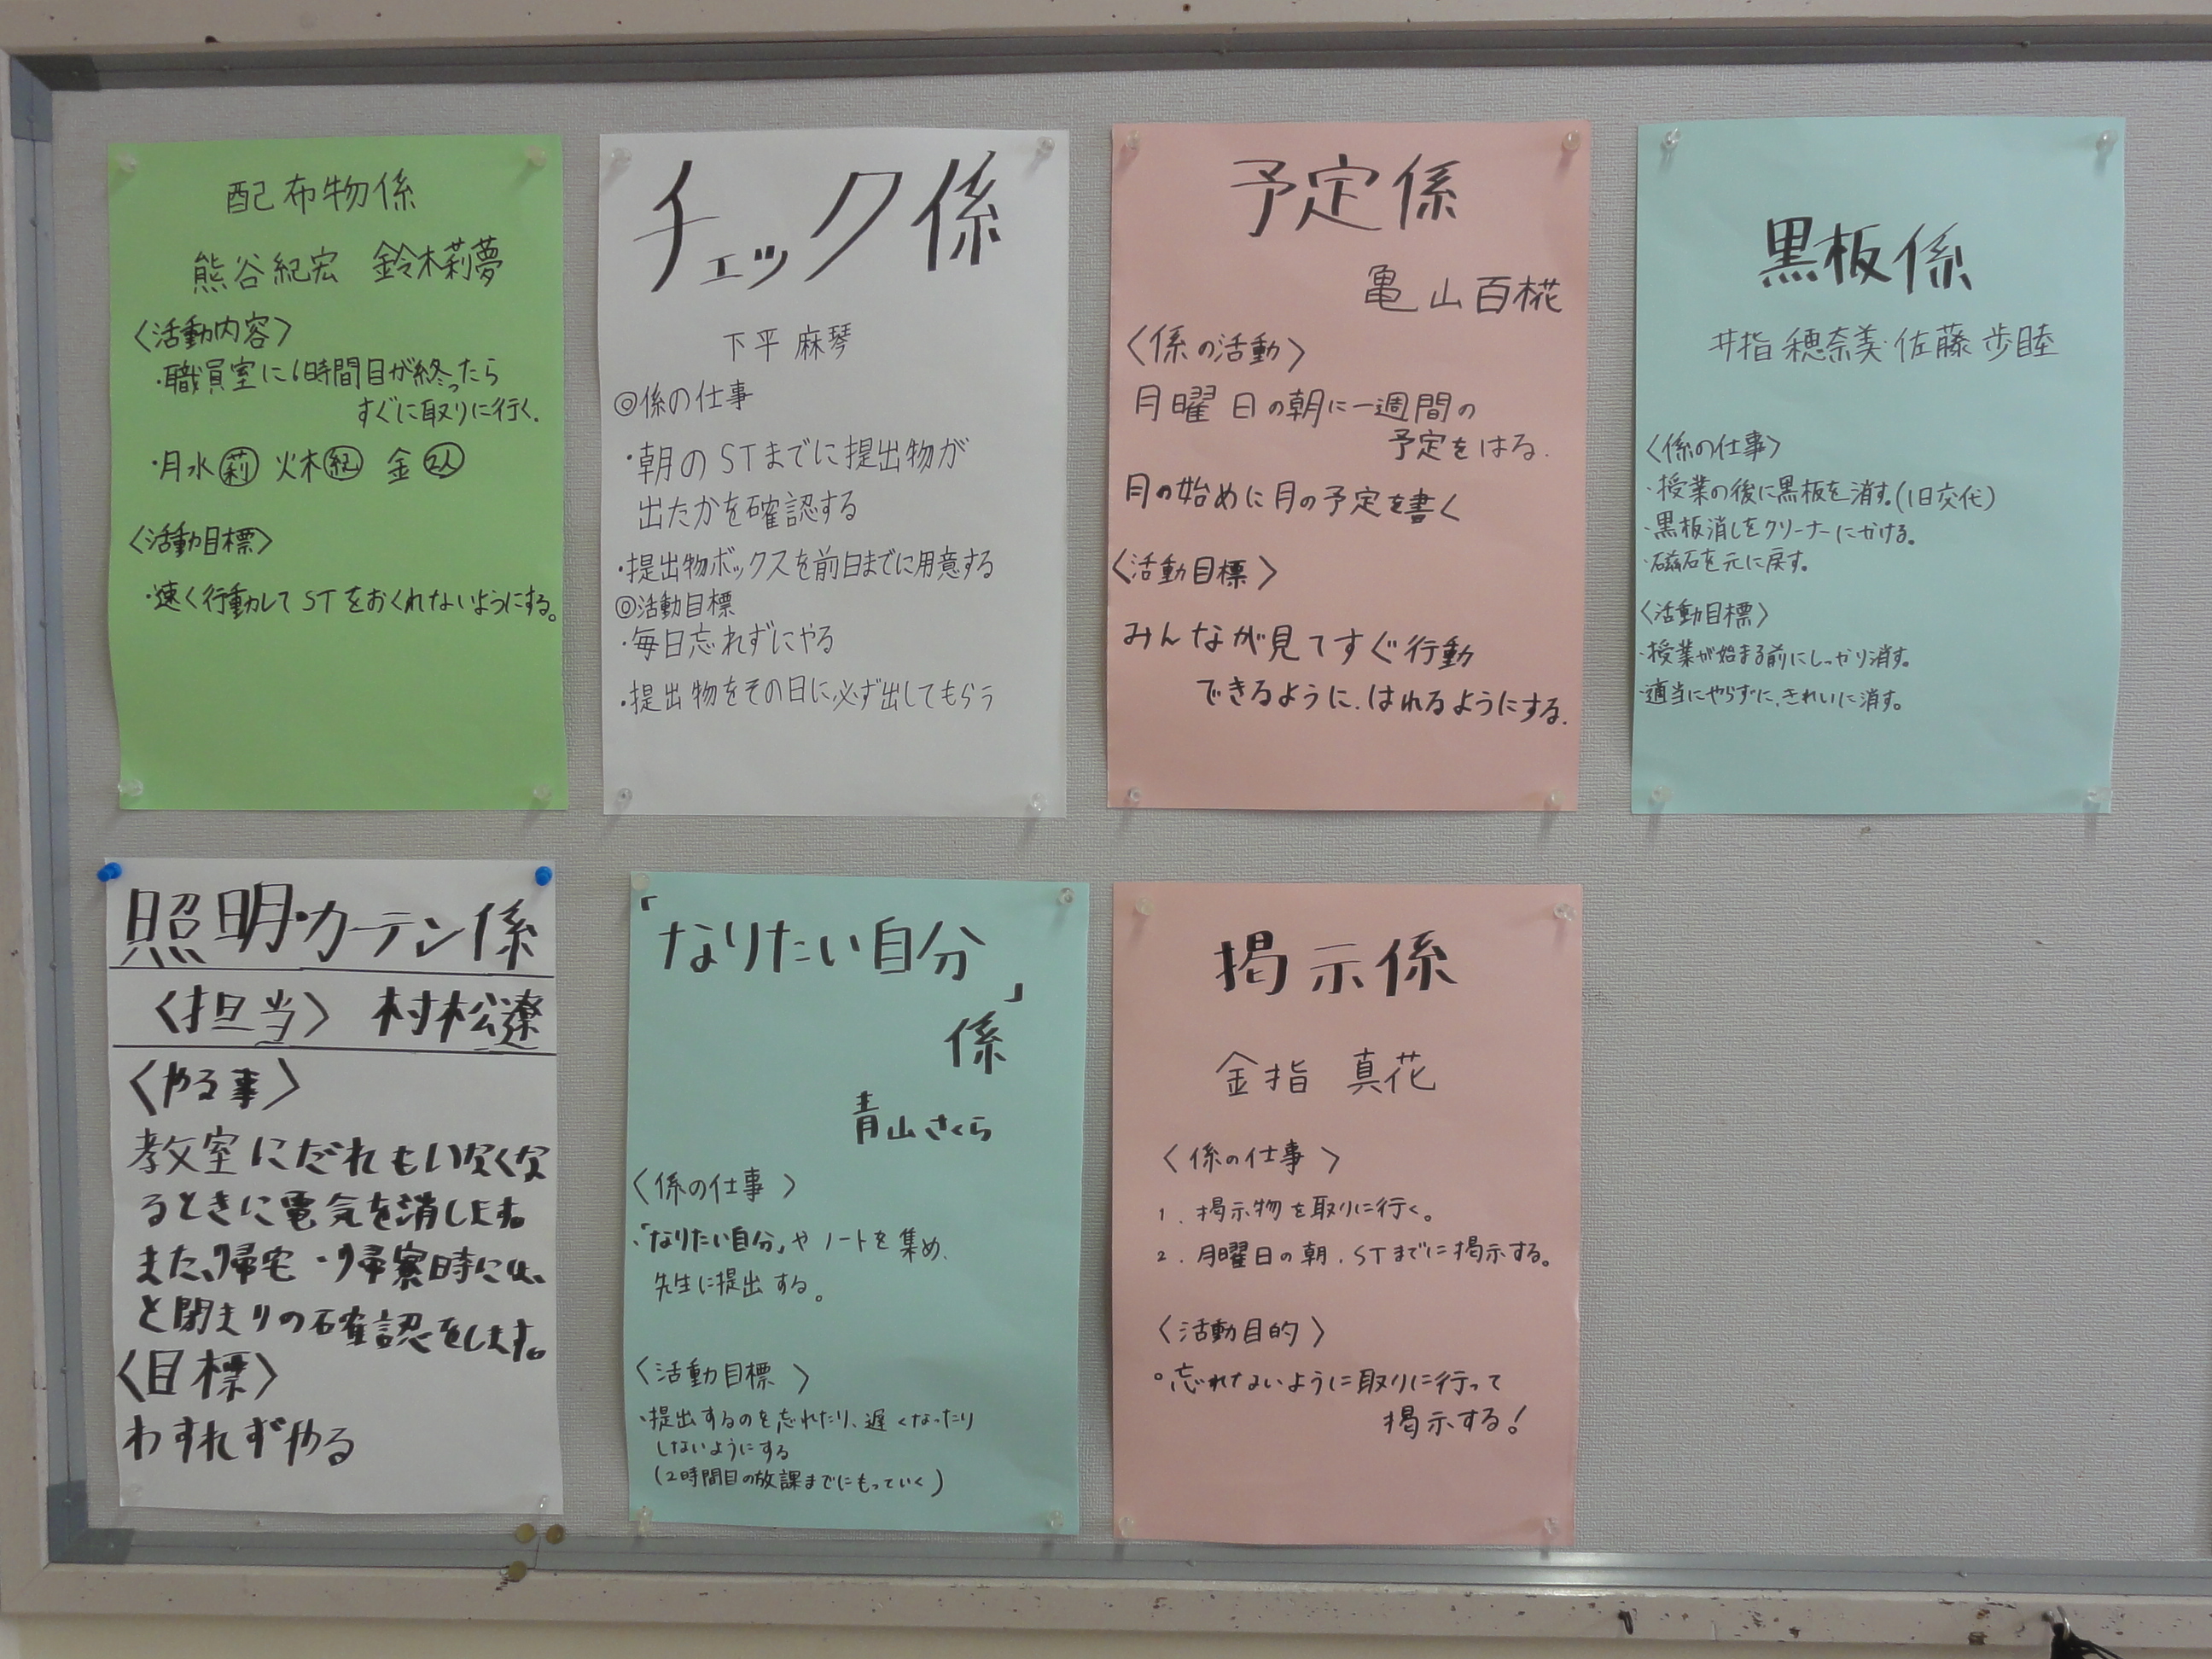 配布物係
熊谷紀宏 鈴木莉夢
〈活動内容〉
・職員室に6時間目が終ったら
すぐに取りに行く.
・月水㊀莉 火木紀 金2人
〈活動目標〉
・速く行動してSTをおくれないようにする。
チェック係
下平 麻琴
◎係の仕事
・朝のSTまでに提出物が
出たかを確認する
・提出物ボックスを前日までに用意する
◎活動目標
・毎日忘れずにやる
・提出物をその日に必ず出してもらう
予定係
亀山百椛
〈係の活動〉
月曜日の朝に一週間の
予定をはる.
月の始めに月の予定を書く
〈活動目標〉
みんなが見てすぐ行動
できるように.はれるようにする.
黒板係
井指 穂奈美・佐藤 歩睦
〈係の仕事〉
・授業の後に黒板を消す。(1日交代)
・黒板消しをクリーナーにかける。
・磁石を元に戻す。
〈活動目標〉
・授業が始まる前にしっかり消す。
・適当にやらずに、きれいに消す。
照明・カーテン係
〈担当〉 村松遼
〈やる事〉
教室にだれもいなくな
るときに電気を消します。
また、帰宅・帰寮時には、
と閉まりの確認をします。
〈目標〉
わすれずやる
「なりたい自分」
係
青山さくら
〈係の仕事〉
・「なりたい自分」やノートを集め、
先生に提出する。
〈活動目標〉
・提出するのを忘れたり、遅くなったり
しないようにする
(2時間目の放課までにもっていく)
掲示係
金指 真花
〈係の仕事〉
1. 掲示物を取りに行く。
2. 月曜日の朝.STまでに掲示する。
〈活動目的〉
○忘れないように取りに行って
掲示する!